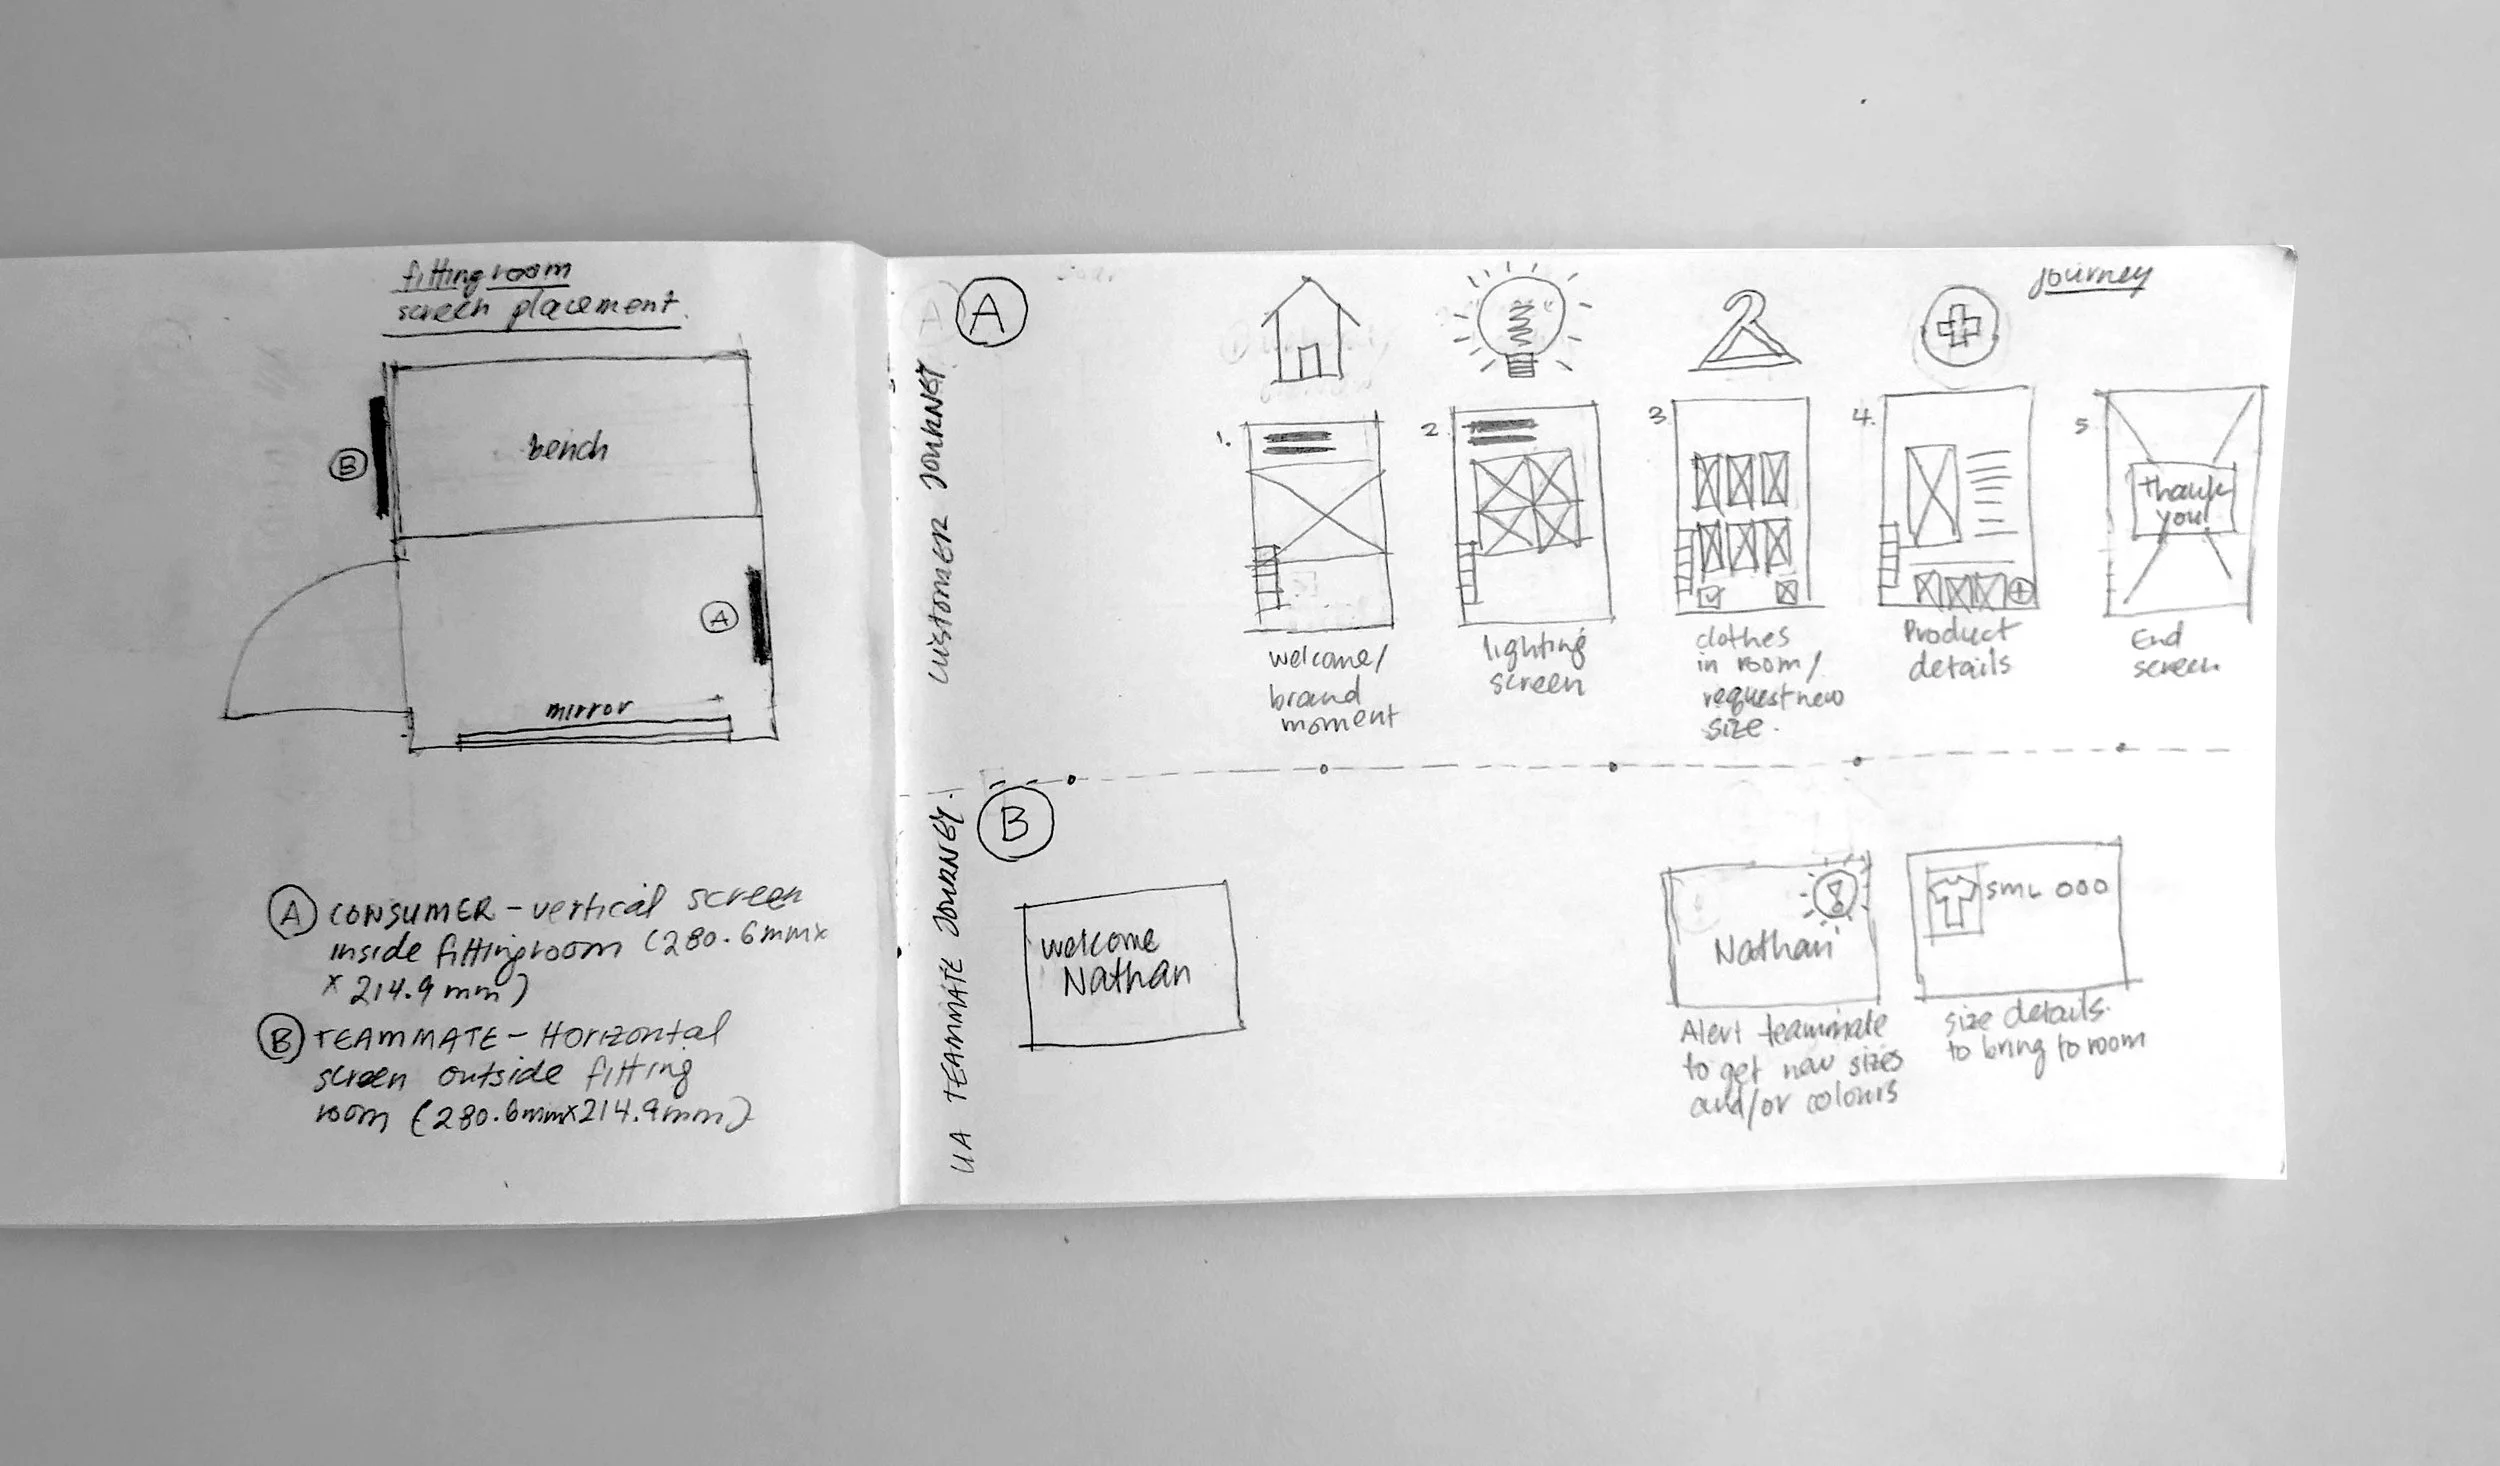 fitting room
screen placement.
bench
B
A
mirror
A CONSUMER – vertical screen
inside fitting room (280.6mm x
x 214.9 mm)
B TEAMMATE – Horizontal
screen outside fitting
room (280.6mm x 214.9mm)
CUSTOMER JOURNEY
A
Journey
1.
2
3
4.
5
Thank
you
welcome/
brand
moment
lighting
screen
clothes
in room/
request new
size.
Product
details
End
screen
UA TEAMMATE JOURNEY.
B
welcome
Nathan
Nathan
SML 000
Alert teammate
to get new sizes
and/or colours
size details
to bring to room